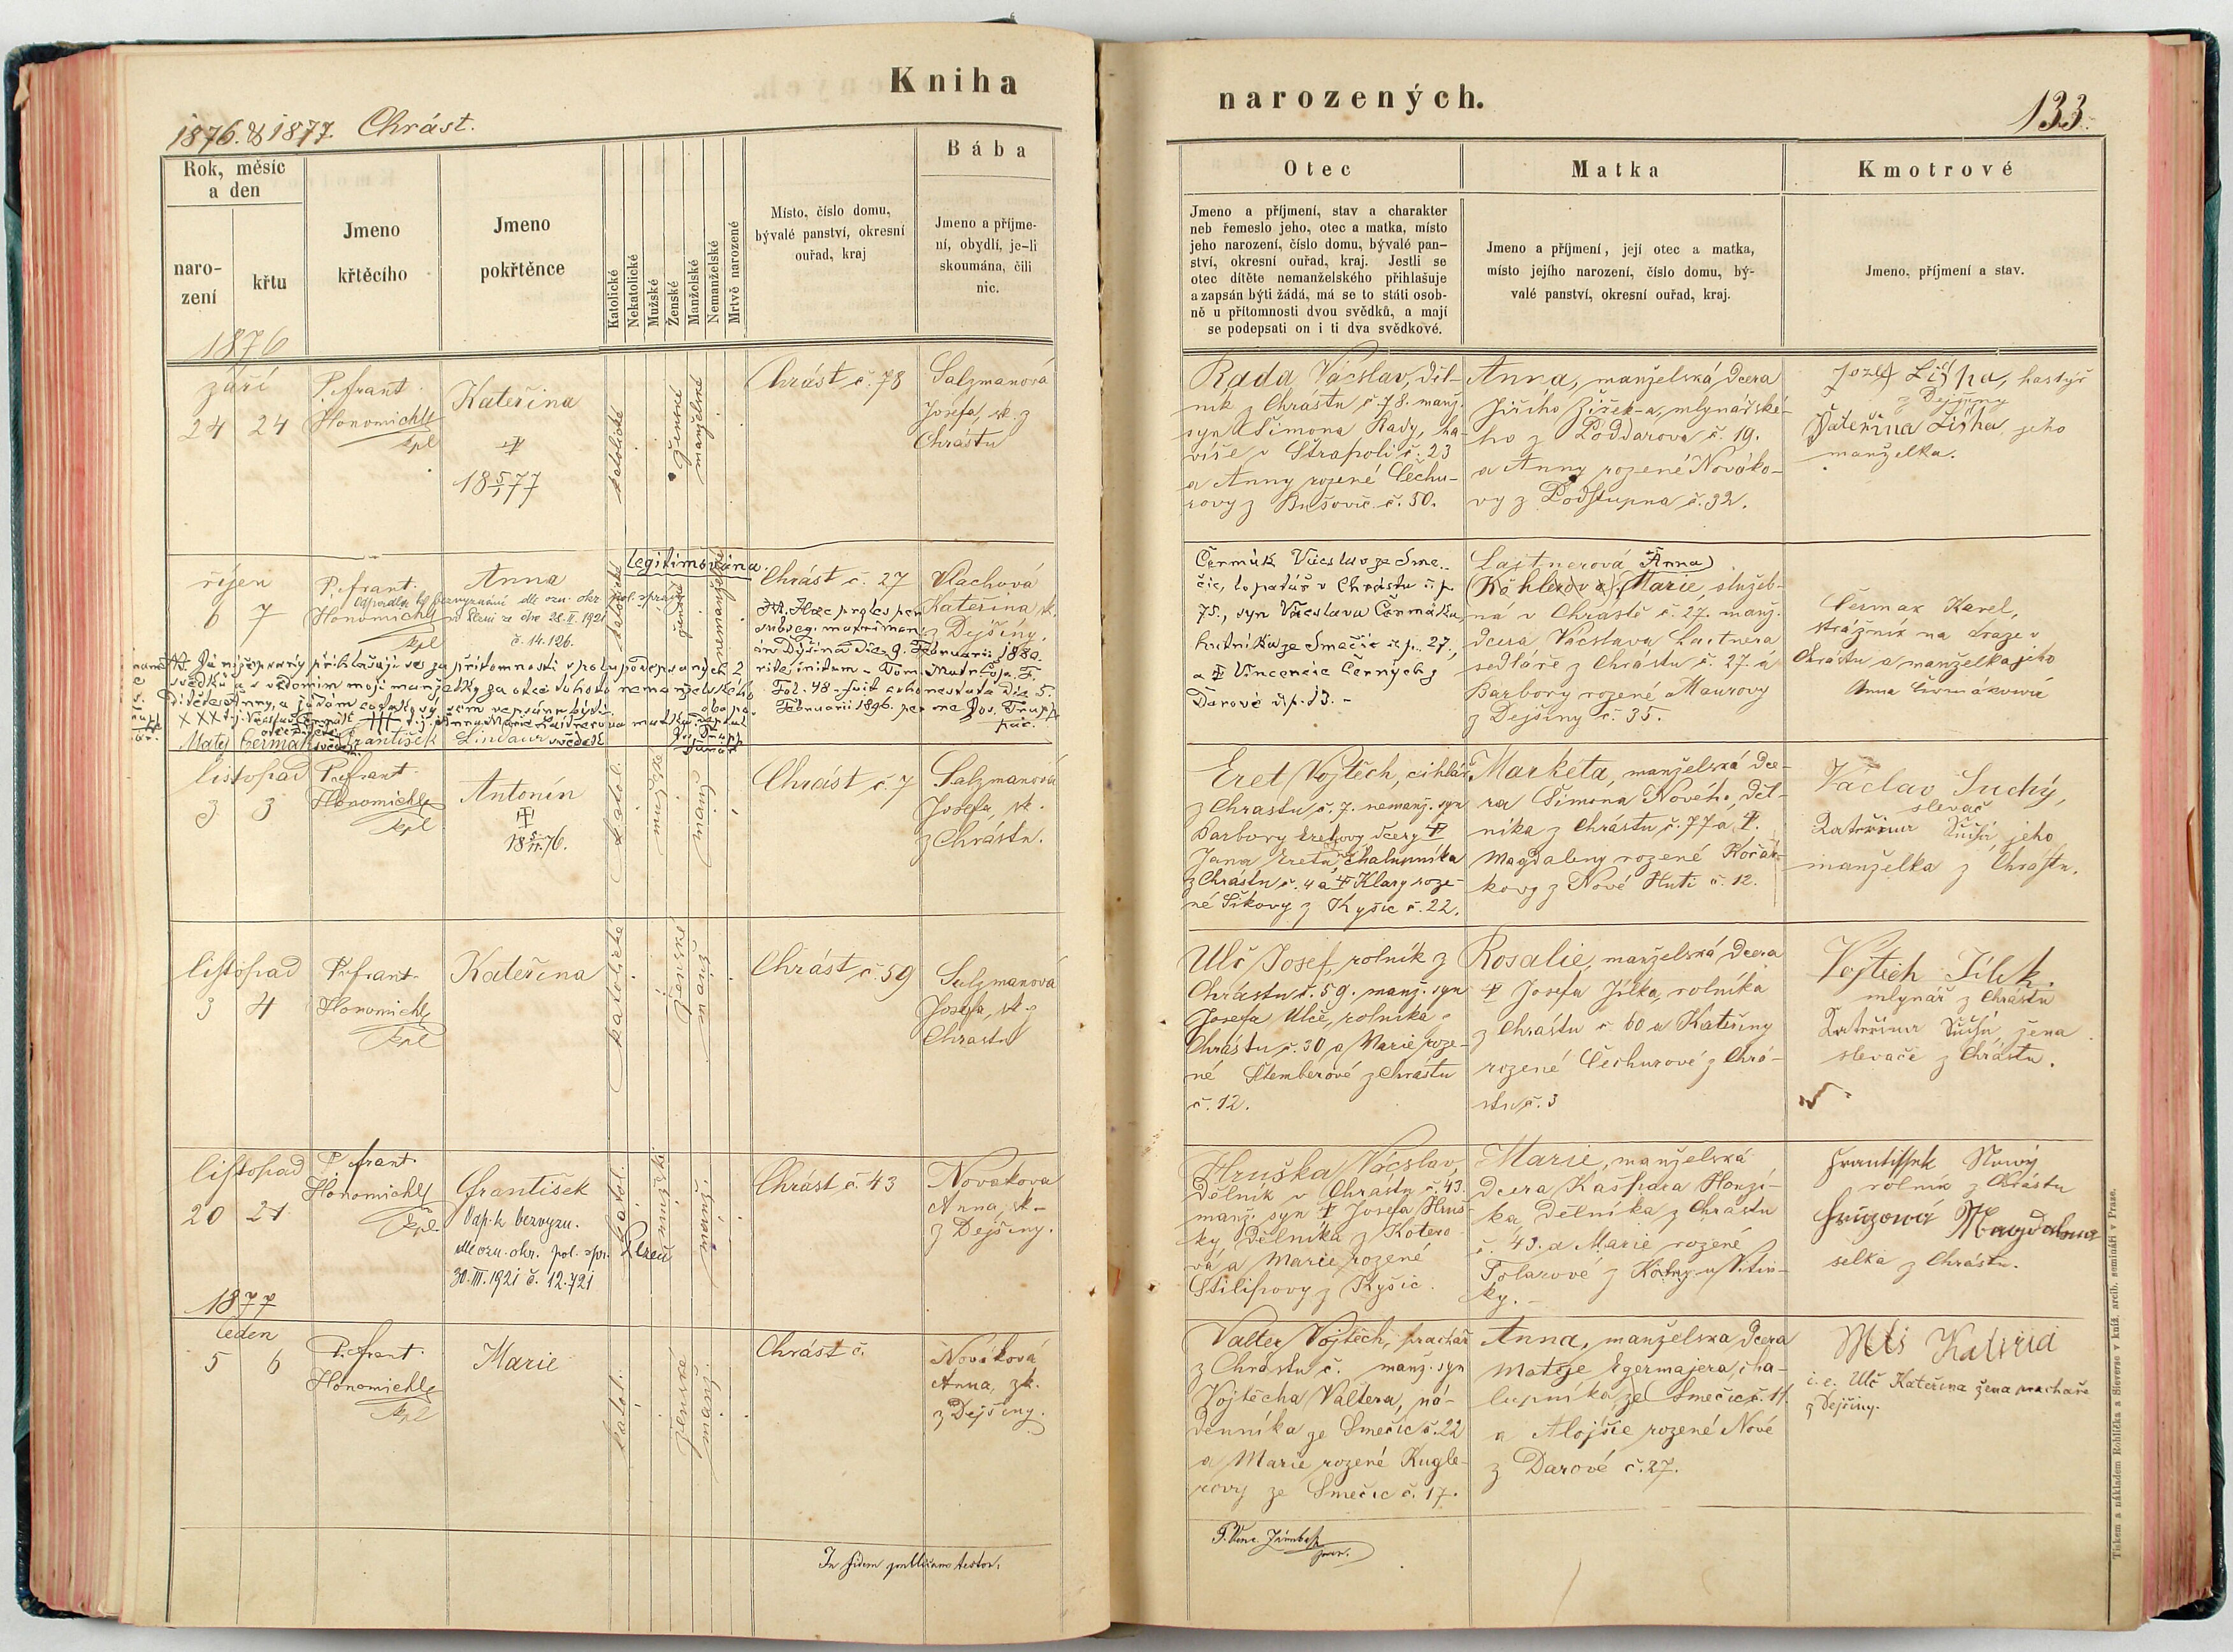 Kniha
narozených.
1876. & 1877. Chrást.
133.
Rok, měsíc
a den
naro-
zení
křtu
Jmeno
křtěcího
Jmeno
pokřtěnce
Katolické
Nekatolické
Mužské
Ženské
Manželské
Nemanželské
Mrtvě narozené
Místo, číslo domu,
bývalé panství, okresní
ouřad, kraj
Bába
Jmeno a příjme-
ní, obydlí, je-li
skoumána, čili
nic.
Otec
Jmeno a příjmení, stav a charakter
neb řemeslo jeho, otec a matka, místo
jeho narození, číslo domu, bývalé pan-
ství, okresní ouřad, kraj. Jestli se
otec dítěte nemanželského přihlašuje
a zapsán býti žádá, má se to státi osob-
ně u přítomnosti dvou svědků, a mají
se podepsati on i ti dva svědkové.
Matka
Jmeno a příjmení, její otec a matka,
místo jejího narození, číslo domu, bý-
valé panství, okresní ouřad, kraj.
Kmotrové
Jmeno, příjmení a stav.
1876
září
24 24
P. Frant.
Honomichl
kpl
Kateřina
18 5/1 77
katolické
ženské
manželské
Chrást č. 78
Salzmanová
Josefa, zk. z
Chrástu
Rada Vácslav, děl-
ník z Chrástu č. 78. manž.
syn Šimona Rady, ha-
víře v Štrapoli č. 23
a Anny rozené Čechu-
rovy z Bušovic č. 50.
Anna, manželská dcera
Jiřího Žížek-a, mlynářské-
ho z Poddarova č. 19.
a Anny rozené Nováko-
vy z Podstupna č. 32.
Jozef Liška, hastýř
z Dejšiny
Kateřina Liška jeho
manželka.
říjen
6 7
P. Frant.
Honomichl
kpl
Anna
Odpadla k bezvyznání dle ozn. okr. pol. správy
v Plzni ze dne 28. II. 1921
č. 14.126.
Legitimována.
katolické
ženské
nemanželské
Chrást č. 27
Haec proles per
subseq. matrimon.
in Dýšina die 9. Februarii 1880.
rite initum - Tom. Matr. Cop. F.
Fol. 48 - fuit cohonestata die 5.
Februarii 1896. per me Jos. Trupp
Vlachová
Kateřina zk.
z Dejšiny.
Já nížepsaný přihlašuji se za přítomnosti spolupodepsaných 2
svědků a s vědomím mojí manželky za otce tohoto nemanželského
dítěte Anny, a žádám co takový sem vepsán býti.
Matěj Čermák František Lindaur svědek
Čermák Vácslav ze Sme-
čic, lopatář v Chrástu č. p.
75., syn Vácslava Čermáka
hutníka ze Smečic č. p. 27.,
a Vincencie Černých z
Darové č. p. 13. -
Lajtnerová Anna
(Köhlerova) Marie, služeb-
ná v Chrástě č. 27. manž.
dcera Vácslava Lajtnera
sedláře z Chrástu č. 27. a
Barbory rozené Maurovy
z Dejšiny č. 35.
Čermak Karel,
strážník na draze v
Chrástu a manželka jeho
Anna Čermákowá
listopad
3 3
P. Frant.
Honomichl
kpl
Antonín
18 5/11 76.
katol.
mužské
manž.
Chrást č. 7
Salzmanová
Josefa, zk.
z Chrástu.
Eret Vojtěch, cihlář
z Chrástu č. 7. nemanž. syn
Barbory Eretovy dcery
Jana Ereta, chalupníka
z Chrástu č. 4 a Klary roze-
né Šikovy z Kyšic č. 22.
Marketa, manželská dce-
ra Šimona Nového, děl-
níka z Chrástu č. 77 a
Magdaleny rozené Kořán-
kovy z Nové Huti č. 12.
Václav Suchý,
slevač
Kateřina Suchá, jeho
manželka z Chrástu.
listopad
3 4
P. Frant.
Honomichl
kpl
Kateřina
katolické
ženské
manž.
Chrást č. 59
Salzmanová
Josefa, zk. z
Chrástu
Ulč Josef, rolník z
Chrástu č. 59. manž. syn
Josefa Ulče, rolníka z
Chrástu č. 30 a Marie roze-
né Štemberové z Chrástu
č. 12.
Rosalie, manželská dcera
Josefa Jílka, rolníka
z Chrástu č. 60 a Kateřiny
rozené Čechurové z Chrá-
stu č. 3
Vojtěch Jílek.
mlynář z Chrástu
Kateřina Suchá, žena
slevače z Chrástu.
listopad
20 21
P. Frant.
Honomichl
kpl.
František
Odp. k bezvyzn.
dle ozn. okr. pol. spr. Plzeň
30. III. 1921 č. 12.721
katol.
mužské
manž.
Chrást č. 43
Novakova
Anna, zk.
z Dejšiny.
Hruška Vácslav,
dělník v Chrástu č. 43.
manž. syn Josefa Hruš-
ky dělníka z Kotero-
va a Marie rozené
Stilipovy z Kyšic.
Marie, manželská
dcera Kašpara Honzí-
ka, dělníka z Chrástu
č. 43. a Marie rozené
Tolarové z Kotery u Vitin-
ky. -
Frantissek Nowý
rolník z Chrástu
Magdalena
selka z Chrástu.
1877
leden
5 6
P. Frant.
Honomichl
kpl
Marie
katol.
ženské
manž.
Chrást č.
Nováková
Anna, zk.
z Dejšiny.
Valter Vojtěch, prachař
z Chrástu č. manž. syn
Vojtěcha Valtera, ná-
denníka ze Smečic č. 22
a Marie rozené Kugle-
rovy ze Smečic č. 17.
Anna, manželska dcera
Matěje Egermajera, cha-
lupníka ze Smečic č. 11.
a Alojsie rozené Nové
z Darové č. 27.
i. e. Ulč Kateřina žena prachaře
z Dejšiny.
In fidem
P. Venc.
Tiskem a nákladem Rohlíčka a Sieverse v kníž. arcib. semináři v Praze.